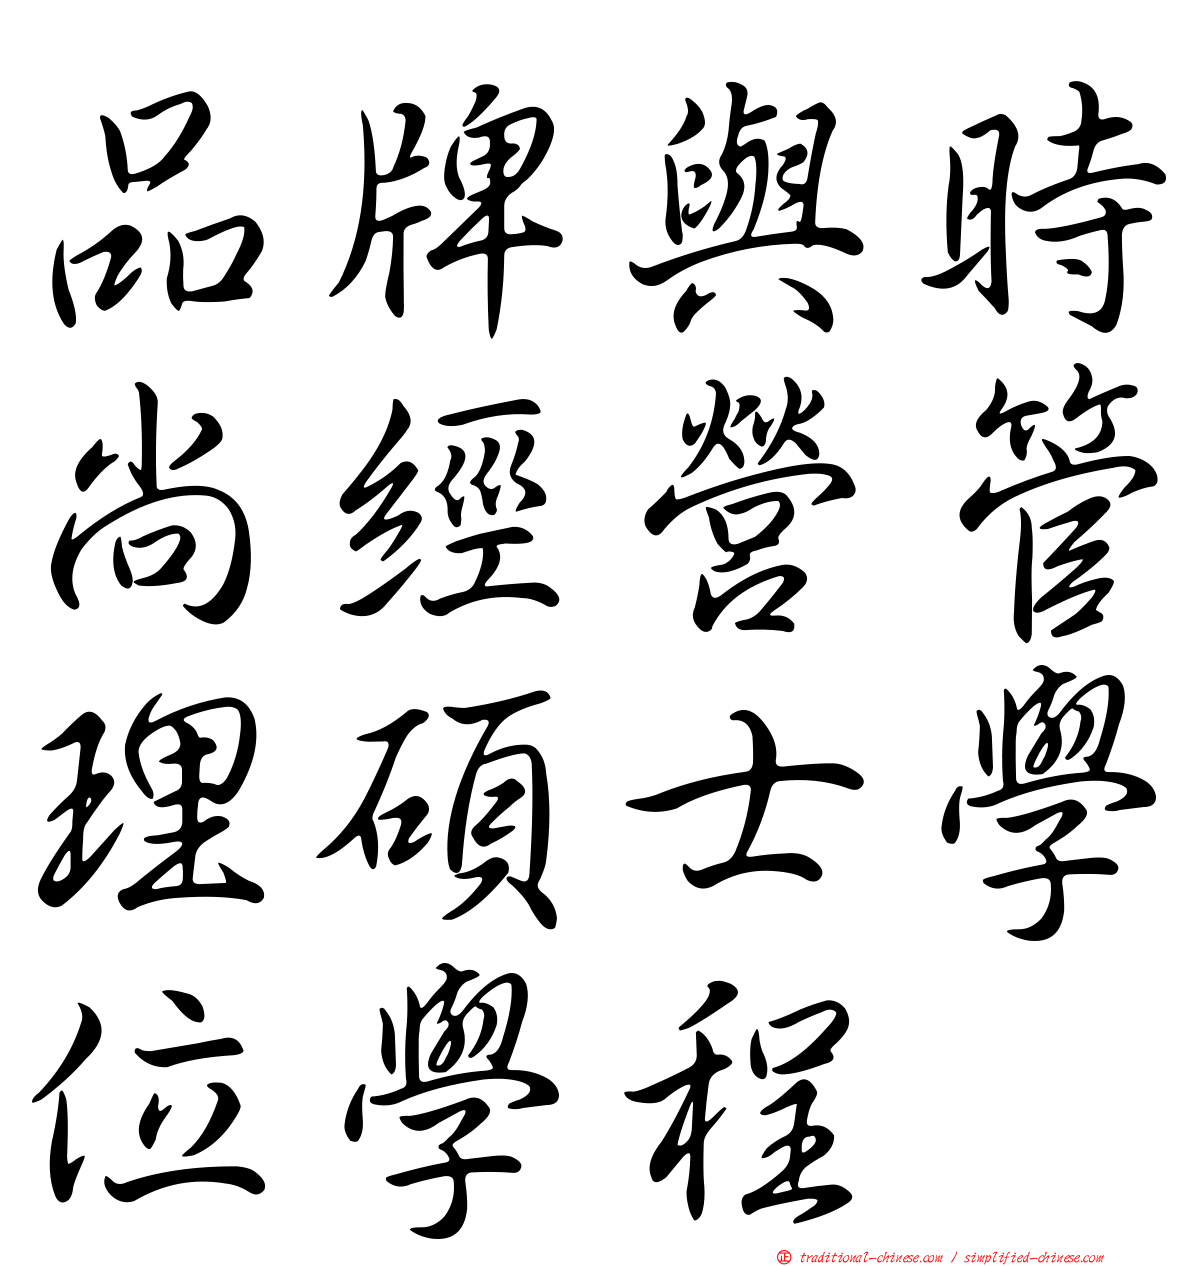 品牌與時
尚經營管
理碩士學
位學程
正 traditional-chinese.com / simplified-chinese.com